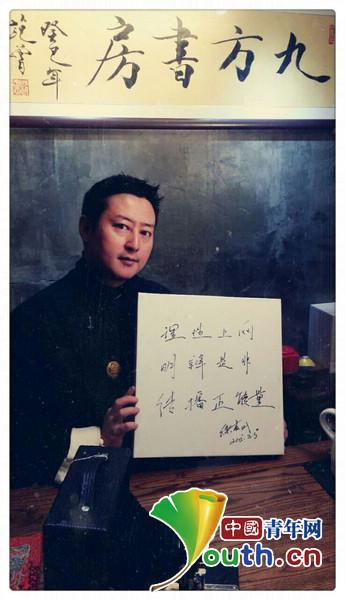 九方書房
癸巳年
范曾
理性上网
明辨是非
传播正能量
中國青年网
Youth.cn